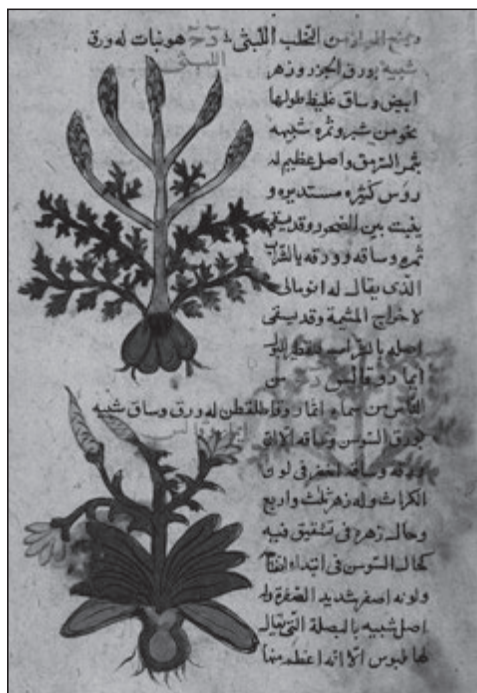 من اللبثى هو نبات له ورق
شبيه بورق الجزر وزهر
ابيض وساق غليظ طولها
نحو من شبر وثمره شبيهه
بثمر السرمق واصل عظيم له
رؤس كثيره مستديره و
ينبت بين الصخور وقد يسقى
ثمره وساقه وورقه بالشراب
الذى يقال له انومالى
لاخراج المشيمة وقد يسقى
اصله بالشراب لتقطير البول
من
الناس من سماه له ورق وساق شبيه
بورق السوسن وساقه الا ان
ورقه وساقه اخضر فى لون
الكراث وله زهر ثلث واربع
وحال زهره فى تشقيق فيه
كحال السوسن فى ابتداء انفتا
ولونه اصفر شديد الصفرة وله
اصل شبيه بالبصلة التى يقال
لها بلبوس الا انه اعظم منها